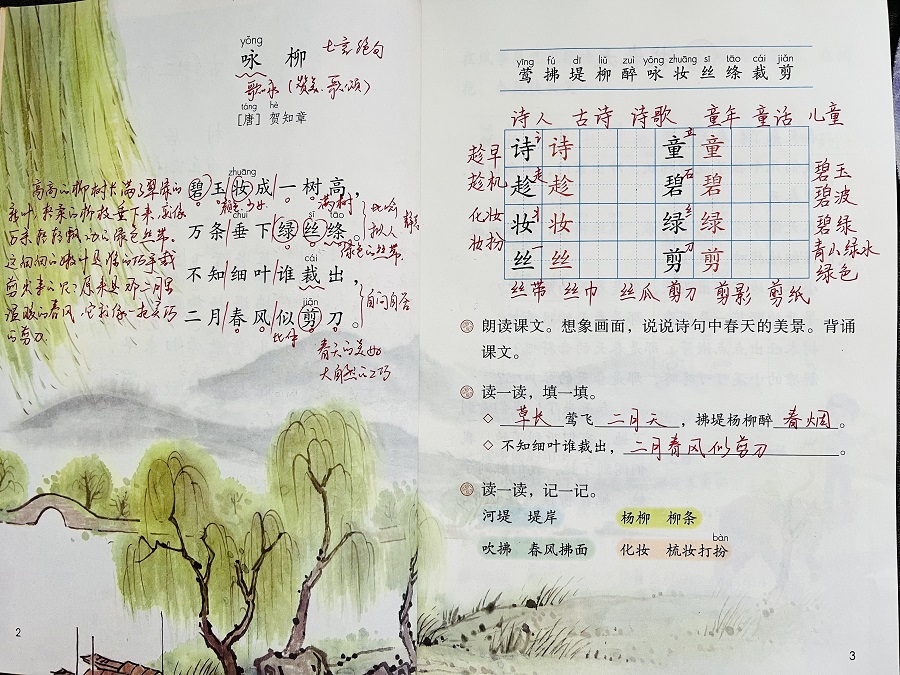 yǒng
咏柳 七言绝句
歌永（赞美、歌颂）
táng hè
[唐] 贺知章
zhuāng
碧玉妆成一树高，
翠色少女 满树
chuí sī tāo
万条垂下绿丝绦。
比喻
拟人
绿色的丝带
cái
不知细叶谁裁出，
jiǎn
二月春风似剪刀。
自问自答
比作
春天的美好
大自然的工巧
高高的柳树长满了翠绿的
新叶，柔柔的柳枝垂下来，就像
万条轻轻飘动的绿色丝带。
这细细的嫩叶是谁的巧手裁
剪出来的呢？原来是那二月里
温暖的春风，它就像一把灵巧
的剪刀。
2
yīng fú dī liǔ zuì yǒng zhuāng sī tāo cái jiǎn
莺拂堤柳醉咏妆丝绦裁剪
诗人 古诗 诗歌 童年 童话 儿童
诗 诗 童 童
趁早
趁机
趁 趁 碧 碧
碧玉
碧波
碧绿
妆 妆 绿 绿
化妆
妆扮
青山绿水
绿色
丝 丝 剪 剪
丝带 丝巾 丝瓜 剪刀 剪影 剪纸
朗读课文。想象画面，说说诗句中春天的美景。背诵
课文。
读一读，填一填。
◇ 草长莺飞二月天，拂堤杨柳醉春烟。
◇ 不知细叶谁裁出，二月春风似剪刀。
读一读，记一记。
河堤 堤岸 杨柳 柳条
bàn
吹拂 春风拂面 化妆 梳妆打扮
3